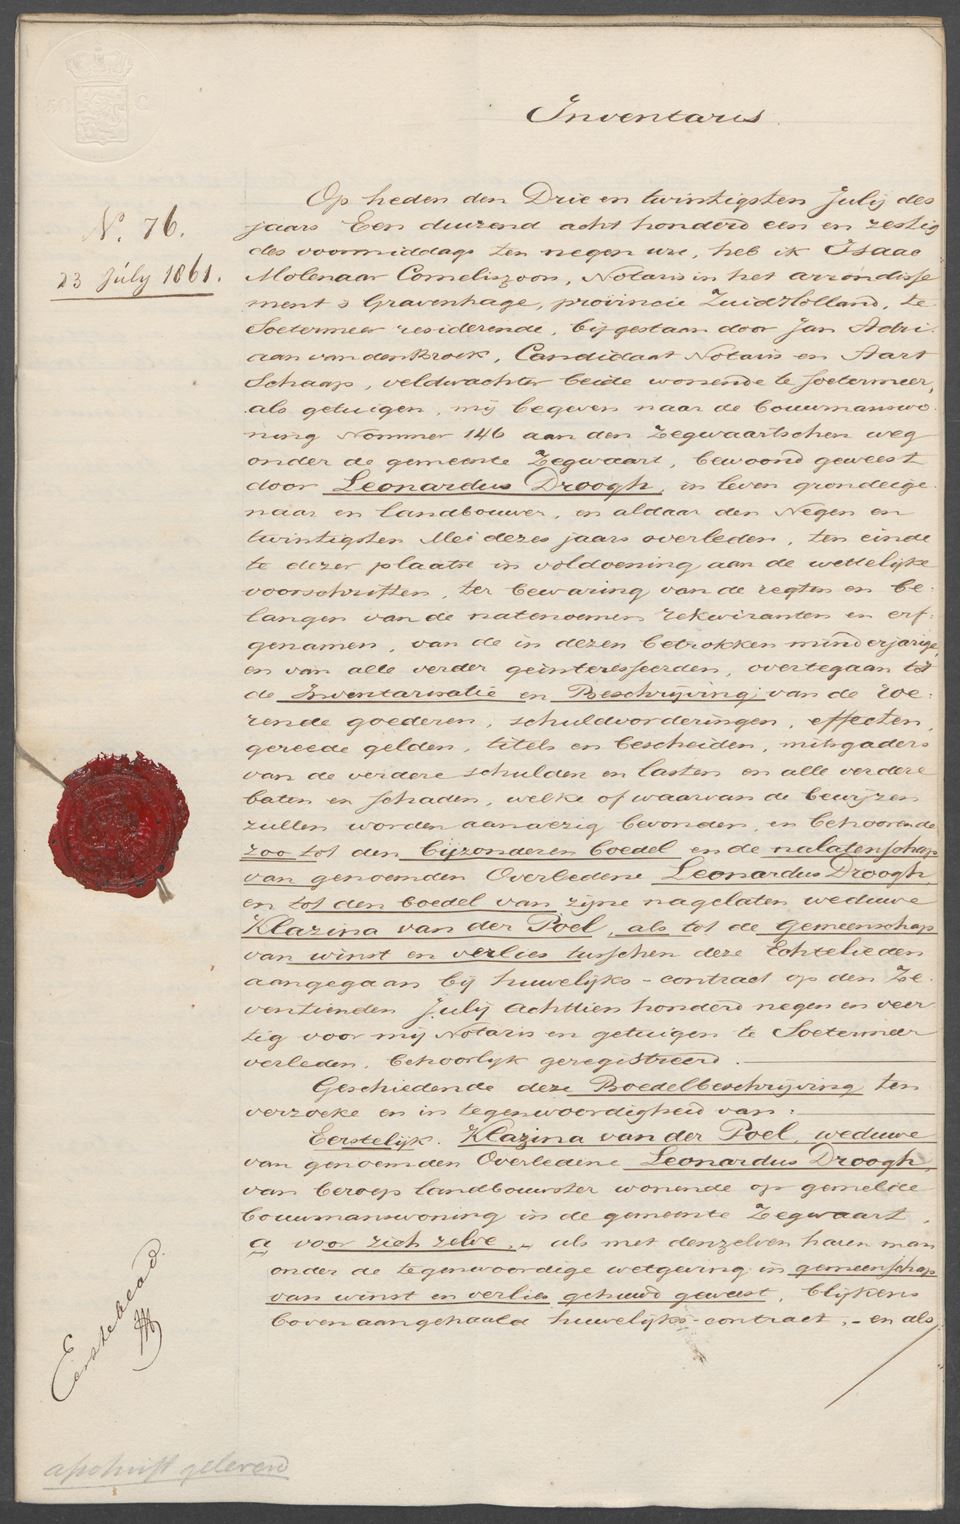 Inventaris
N. 76.
23 July 1861.
Op heden den Drie en twintigsten Julij des
jaars Een duizend acht honderd een en zestig
des voormiddags ten negen ure, heb ik Isaac
Molenaar Corneliszoon, Notaris in het arrondisse
ment s Gravenhage, provincie ZuidHolland, te
Soetermeer residerende, bijgestaan door Jan Adri-
aan van den Broek, Candidaat Notaris en Aart
Schaap, veldwachter beide wonende te Soetermeer,
als getuigen, mij begeven naar de bouwmanswo-
ning Nommer 146 aan den Zegwaartschen weg
onder de gemeente Zegwaart, bewoond geweest
door Leonardus Droogh, in leven grondeige-
naar en landbouwer, en aldaar den Negen en
twintigsten Mei dezes jaars overleden, ten einde
te dezer plaatse in voldoening aan de wettelijke
voorschriften, ter bewaring van de regten en be-
langen van de natenoemen rekwiranten en erf-
genamen, van de in dezen betrokken minderjarige,
en van alle verder geinteresseerden, overtegaan tot
de Inventarisatie en Beschrijving van de roe-
rende goederen, schuldvorderingen, effecten,
gereede gelden, titels en bescheiden, mitsgaders
van de verdere schulden en lasten en alle verdere
baten en schaden, welke of waarvan de bewijzen
zullen worden aanwezig bevonden, en behoorende
zoo tot den bijzonderen boedel en de nalatenschap
van genoemden Overledene Leonardus Droogh,
en tot den boedel van zijne nagelaten weduwe
Klazina van der Poel, als tot de gemeenschap
van winst en verlies tusschen deze Echtelieden
aangegaan bij huwelijks-contract op den Ze-
ventienden Julij achttien honderd negen en veer-
tig voor mij Notaris en getuigen te Soetermeer
verleden, behoorlijk geregistreerd.
Geschiedende deze Boedelbeschrijving ten
verzoeke en in tegenwoordigheid van:
Eerstelijk. Klazina van der Poel, weduwe
van genoemden Overledene Leonardus Droogh,
van beroep landbouwster wonende op gemelde
bouwmanswoning in de gemeente Zegwaart,
a voor zich zelve,- als met denzelven haren man
onder de tegenwoordige wetgeving in gemeenschap
van winst en verlies gehuwd geweest, blijkens
bovenaangehaald huwelijks-contract,- en als
Eerste blad.
afschrift geleverd